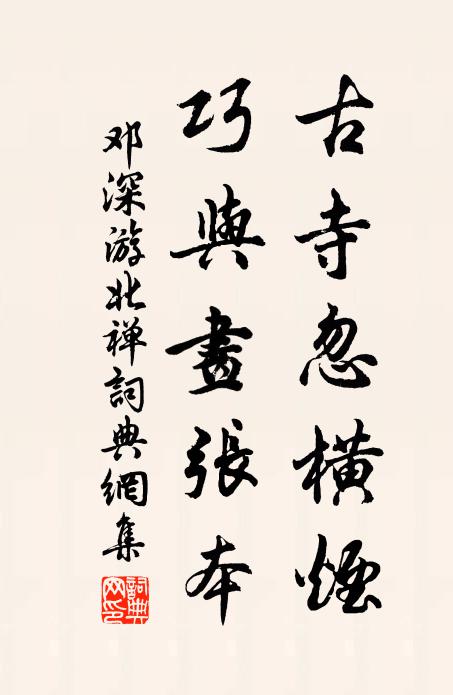 古寺忽橫煙
巧與畫張本
邓深游北禅詞典網集
詞典網印